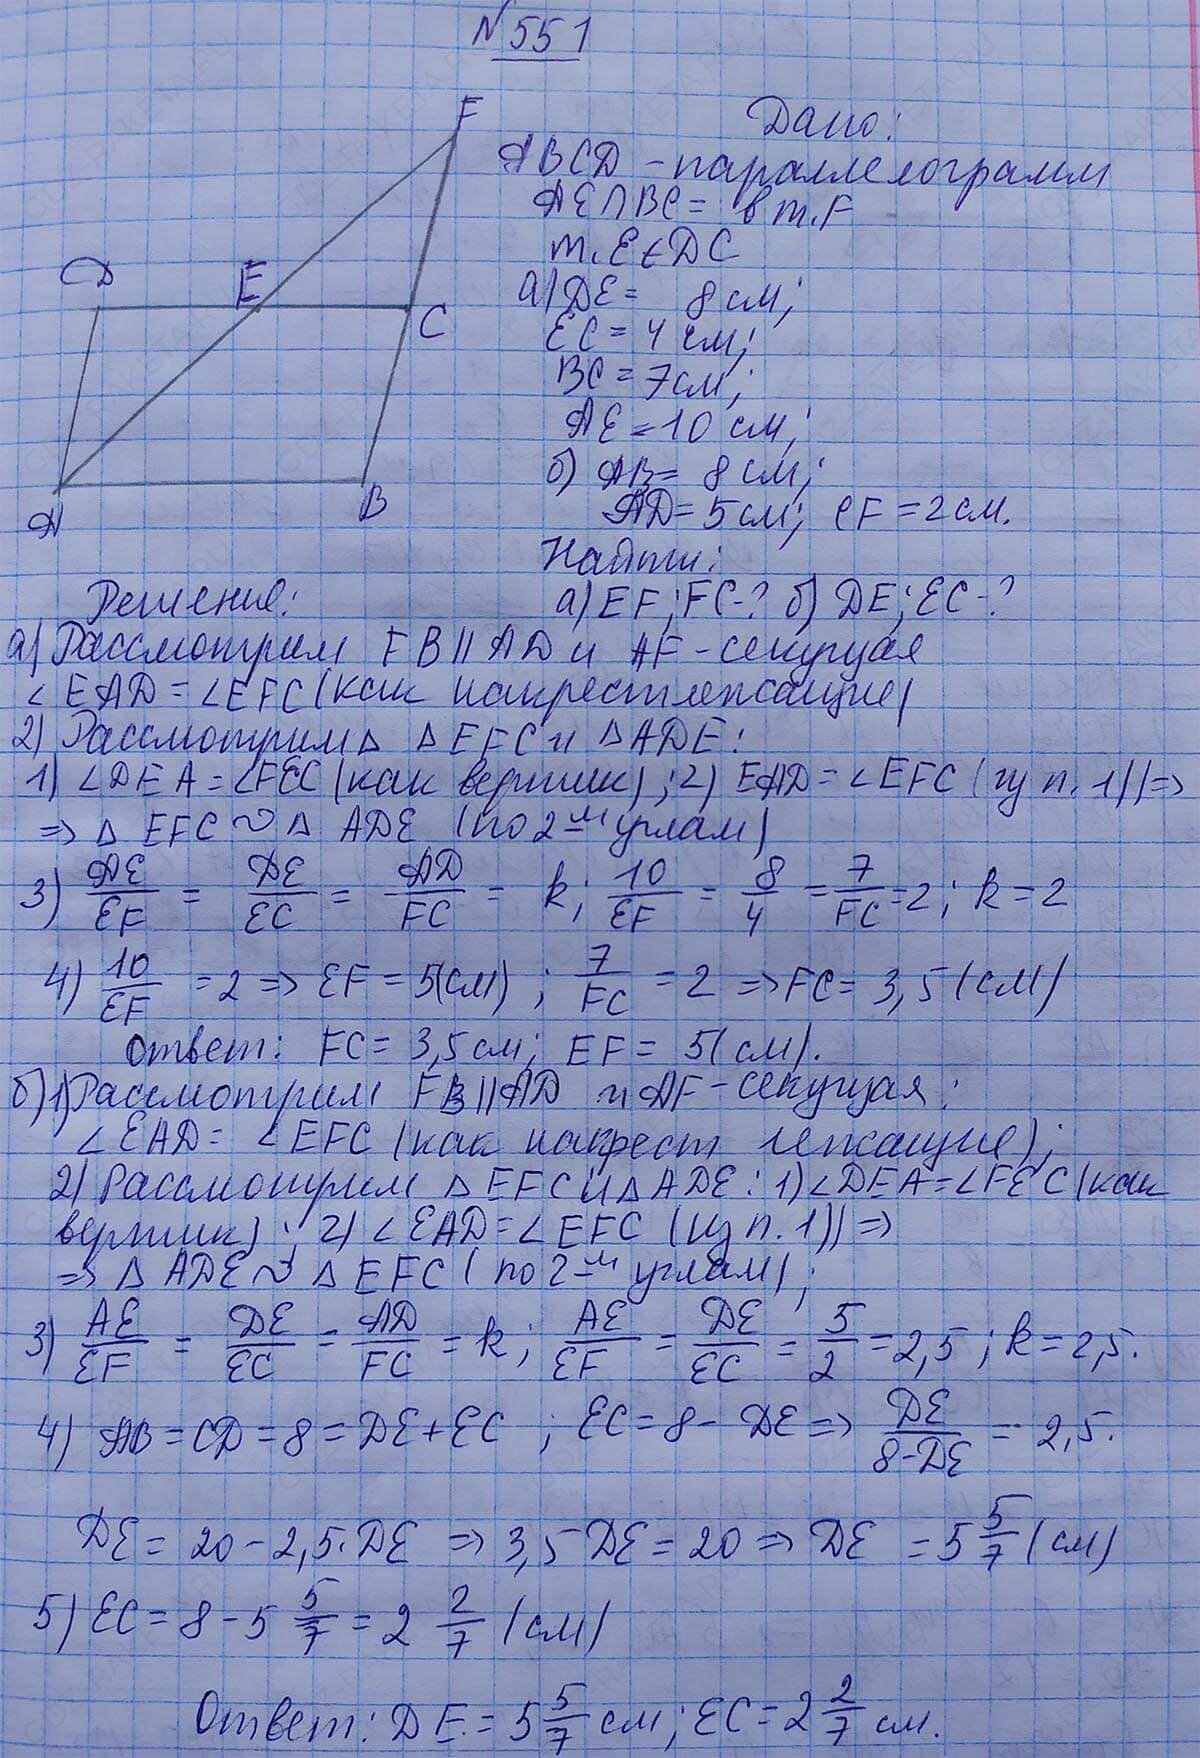 №551
F
Дано:
ABCD - параллелограмм
AE∩BC = в т. F
т. E ∈ DC
D
E
C
а) DE = 8 см;
EC = 4 см;
BC = 7 см;
AE = 10 см;
б) AB = 8 см;
A
B
AD = 5 см; CF = 2 см.
Найти:
а) EF; FC-? б) DE; EC-?
Решение:
а) Рассмотрим FB || AD и AF - секущая
∠EAD = ∠EFC (как накрестлежащие)
2) Рассмотрим △ △EFC и △ADE:
1) ∠DEA = ∠FEC (как вертик); 2) EAD = ∠EFC (из п. 1)) =>
=> △ EFC ~ △ ADE (по 2-м углам)
3) AE/EF = DE/EC = AD/FC = k; 10/EF = 8/4 = 7/FC = 2; k = 2
4) 10/EF = 2 => EF = 5(см); 7/FC = 2 => FC = 3,5 (см)
Ответ: FC = 3,5 см; EF = 5(см).
б) 1) Рассмотрим FB || AD и AF - секущая:
∠EAD = ∠EFC (как накрест лежащие);
2) Рассмотрим △EFC и △ADE: 1) ∠DEA = ∠FEC (как
вертик); 2) ∠EAD = ∠EFC (из п. 1)) =>
=> △ ADE ~ △ EFC (по 2-м углам);
3) AE/EF = DE/EC = AD/FC = k; AE/EF = DE/EC = 5/2 = 2,5; k = 2,5.
4) AB = CD = 8 = DE + EC; EC = 8 - DE => DE/8-DE = 2,5.
DE = 20 - 2,5·DE => 3,5 DE = 20 => DE = 5 5/7 (см)
5) EC = 8 - 5 5/7 = 2 2/7 (см)
Ответ: DE = 5 5/7 см; EC = 2 2/7 см.